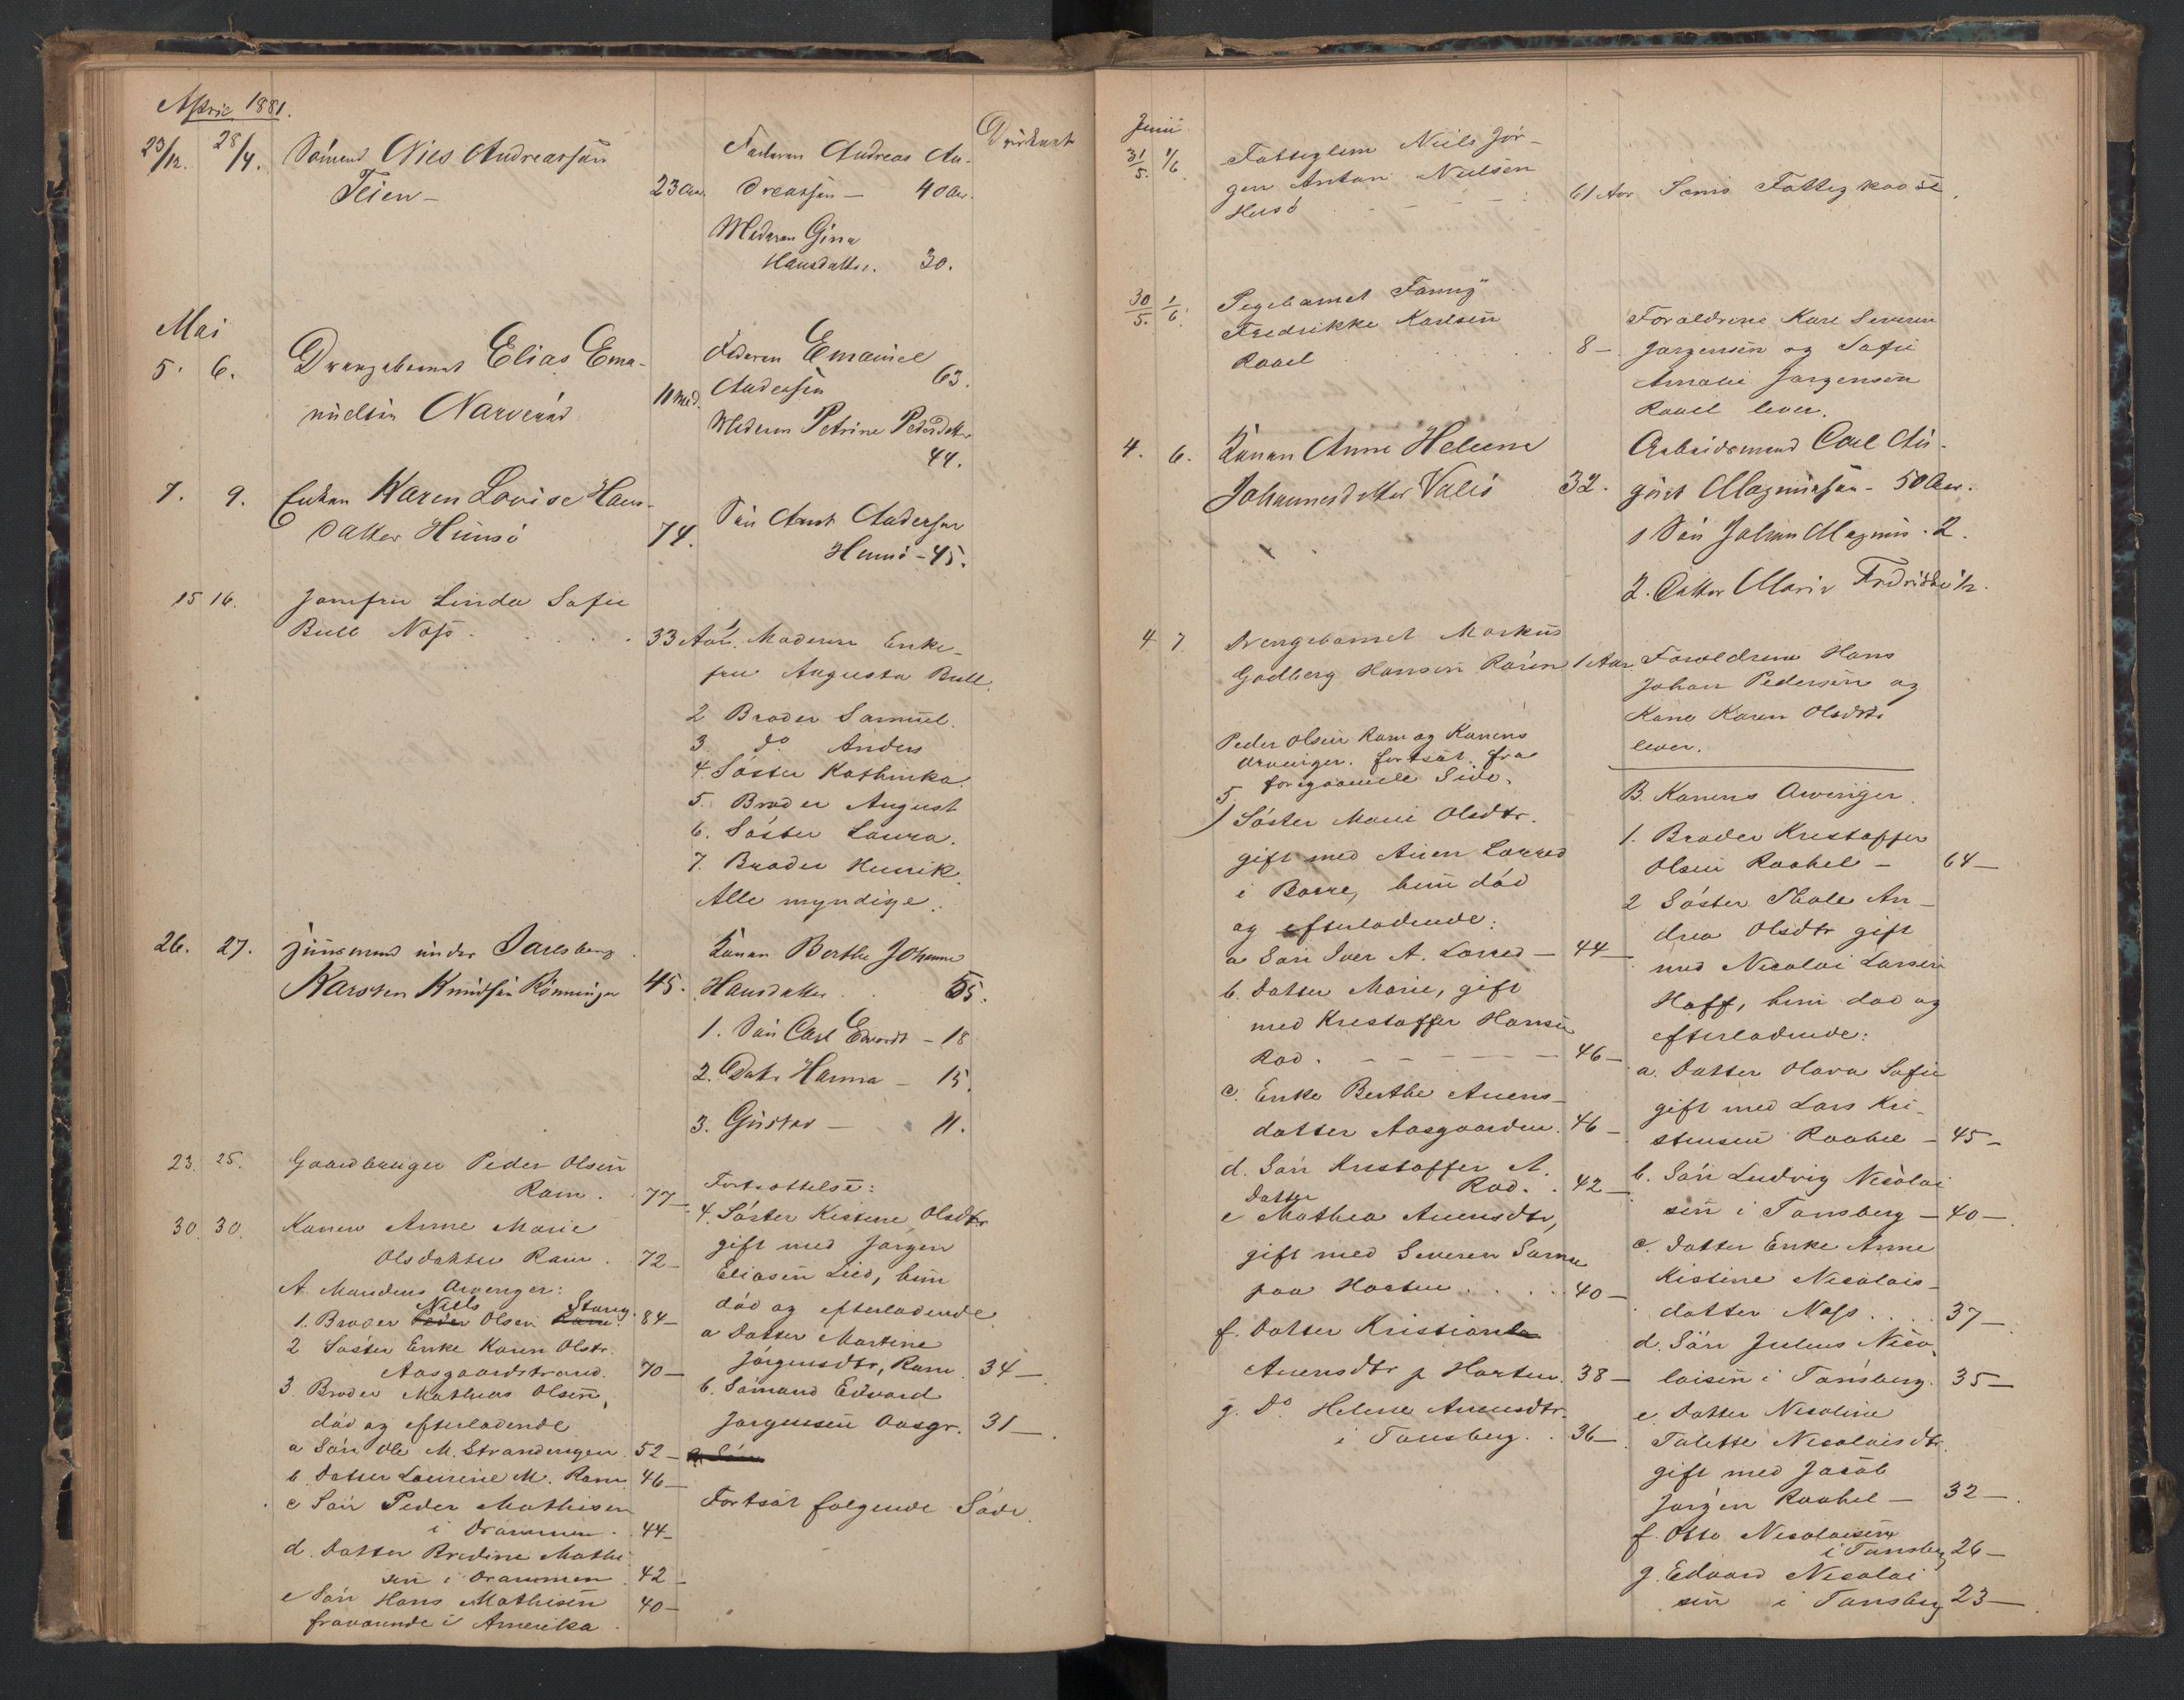 April 1881.
23/12. 28/4. Sömand Nils Andreassön
Teien — 23 Aar.
Faderen Andreas An-
dreassen — 40 Aar.
Moderen Gine
Hansdatter. 30.
Druknet
Mai
5. 6. Drengebarnet Elias Ema-
nuelsen Narverød 11 Md.
Faderen Emanuel
Andersen 63.
Moderen Petrine Pedersdatter
44.
7. 9. Enken Karen Lovise Hans-
datter Husø 74.
Søn Anders
Husø - 45.
15 16. Jomfru Linda Sofie
Bull Næss . . . . . 33 Aar.
1. Moderen Enke-
fru Augusta Bull.
2 Broder Samuel.
3 do Anders
4. Søster Kathinka.
5. Broder August
6. Søster Laura.
7. Broder Henrik.
Alle myndige.
26. 27. Huusmand under Jarlsberg
Karsten Knudsen Rönningen 45.
Konen Berthe Johanne
Hansdatter 55.
1. Søn Carl Edvardt — 18
2. Datr Hanna — 15.
3. Gustav — 11.
23. 25. Gaardbruger Peder Olsen
Ram . 77 —
30. 30. Konen Anne Marie
Olsdatter Ram . 72 —
A. Mandens Arvinger:
1. Broder Peder Niels Olsen Ram Stang. 84 —
2 Søster Enke Karen Olsdtr.
Aasgaardstrand. 70 —
3. Broder Mathias Olsen,
død og efterladende
a Søn Ole M. Strandengen . 52 —
b. Datter Laurine M. Ram. 46 —
c Søn Peder Mathisen
i Drammen . 44 —
d. Datter Bredine Mathi
sen i Drammen . 42 —
e Søn Hans Mathisen 40 —
fraværende i Amerika .
Fortsættelse:
4. Søster Kistine Olsdtr
gift med Jørgen
Eliasen Lied, hun
død og efterladende
a Datter Martine
Jørgensdtr, Ram . 34 —
b. Sømand Edvard
Jørgensen Aasgr. 31 —
a Søn
Fortsat følgende Side.
Juni
31/5. 1/6. Fattiglem Niels Jör-
gen Anton Nielsen
Husö . - - - - 61 Aar Sems Fattigkasse.
30/5. 1/6. Pigebarnet Fanny
Fredrikke Karlsen
Rael . . . . 8 —
Forældrene Karl Severin
Jørgensen og Sofie
Amalie Jørgensen
Rael lever.
4. 6. Konen Anne Helene
Johannesdatter Valø 32.
Arbeidsmand Carl Au-
gust Magnussen - 50 Aar.
1 Søn Johan Magnus . 2.
2. Datter Marie Fredrikke 1/2.
4. 7. Drengebarnet Markus
Godberg Hansen Råen 1 Aar
Forældrene Hans
Johan Pedersen og
Kone Karen Olsdtr.
lever.
Peder Olsen Ram og Konens
Arvinger. fortsat fra
foregaaende Side.
5) Søster Marie Olsdtr.
gift med Anen Lorred
i Borre, hun død
og efterladende:
a Søn Iver A. Lorred — 44 —
b. Datter Marie, gift
med Kristoffer Hansen
Rød . - - - - - 46 —
c. Enke Berthe Anens-
datter Aasgaarden . 46 —
d. Søn Kristoffer A.
Rød . . 42 —
e Datter Mathea Anensdtr,
gift med Severin
paa Horten . . . . 40 —
f. Datter Kristiane
Anensdtr p Horten . 38 —
g. Do Helene Anensdtr.
i Tønsberg . . 36 —
B. Konens Arvinger.
1. Broder Kristoffer
Olsen Raahel — 64 —
2 Søster Thale An-
drea Olsdtr gift
med Nicolai Larsen
Hoff, hun død og
efterladende:
a. Datter Olava Sofie
gift med Lars Kri-
stensen Raahel — 45 —
b. Søn Ludvig Nicolai
sen i Tønsberg — 40 —
c. Datter Enke Anne
Kistine Nicolais-
datter Næss . . . . 37 —
d. Søn Julius Nico-
laisen i Tønsberg. 35 —
e. Datter Nicoline
Talette Nicolaisdtr.
gift med Jacob
Jørgen Raahel — 32 —
f. Otto Nicolaisen
i Tønsberg 26 —
g. Edvard Nicolai
sen i Tønsberg 23 —